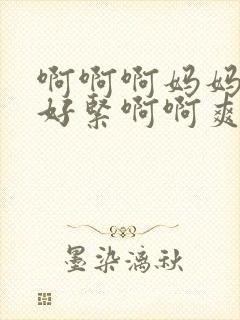 啊啊啊妈妈
好紧啊啊爽
墨染漓秋